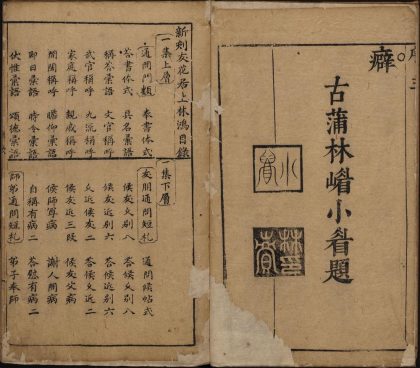 癖
古蒲林㟙小眷題
新刻友花居上林鴻目錄
一集上層
通問門類
表書体式
答書体式
具名彙語
稱答彙語
文官稱呼
武官稱呼
九流稱呼
家庭稱呼
親戚稱呼
閨閫稱呼
瞻仰彙語
即日彙語
時令彙語
伏惟彙語
頌德彙語
一集下層
友朋通問短札
通問候帖式
候友久別八
答候久別八
候友遠別六
答候遠別六
久近候友二
答候久近二
候友近三叚
候友父病
候師尊病
謝人問病
自稱有病二
答慰有病二
師弟通問短札
弟子奉師